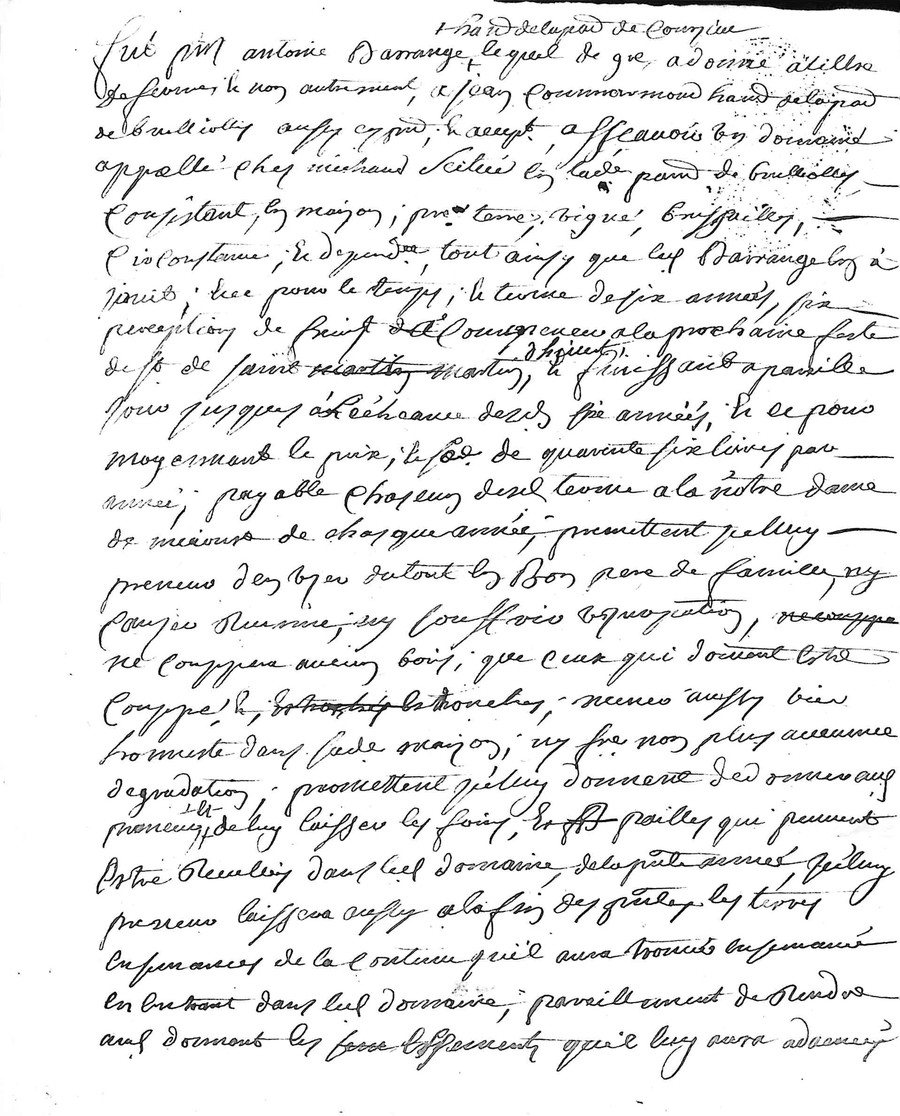 + hand de la pad de Courzieu
fut pnt antoine Barrange + lequel de gre a donné a tiltre
de ferme, & non autrement, a jean hand de la pad
de brulliolles aussy cy pnt, & accept, assçavoir un domaine
appellé chez michaud scitué en lade parr de brulliolles
consistant, en maison, pré terre, vigne, brussailles,
circonstance, & dependce, tout ainsy que led Barrange en a
jouit, & ce pour le temps, & terme de six années, six
perceptions de fruit a commencer a la prochaine feste
de st de saint martin martin, d'hiver, & finissant a pareille
jour jusques a l'écheance desd six années, & ce pour
moyennant le prix, & some de quarente six livres par
année, payable chascun desd terme a la nôtre dame
de micoust de chasque année, promettent
preneur d'en user du tout en Bon pere de famille, ny
causer Ruinne, ny souffrir usurpation, ne couppe
ne couppera aucun bois, que ceux qui doivent estre
couppé, &, esbranches, mener aussy vie
honneste dans lade maison, ny fre non plus aucunne
degradation, promettent donnent de donner aud
preneur, + & de luy laisser les foins, & pailles qui peuvent
Estre Recullis dans led domaine, de la pnte année,
preneur laissera aussy a la fin des pntes les terres
ensemancés de la contenu qu'il aura trouvé ensemancé
en entrant dans led domaine, pareillement de Rendre
aud donnent les qu'il luy aura advancés